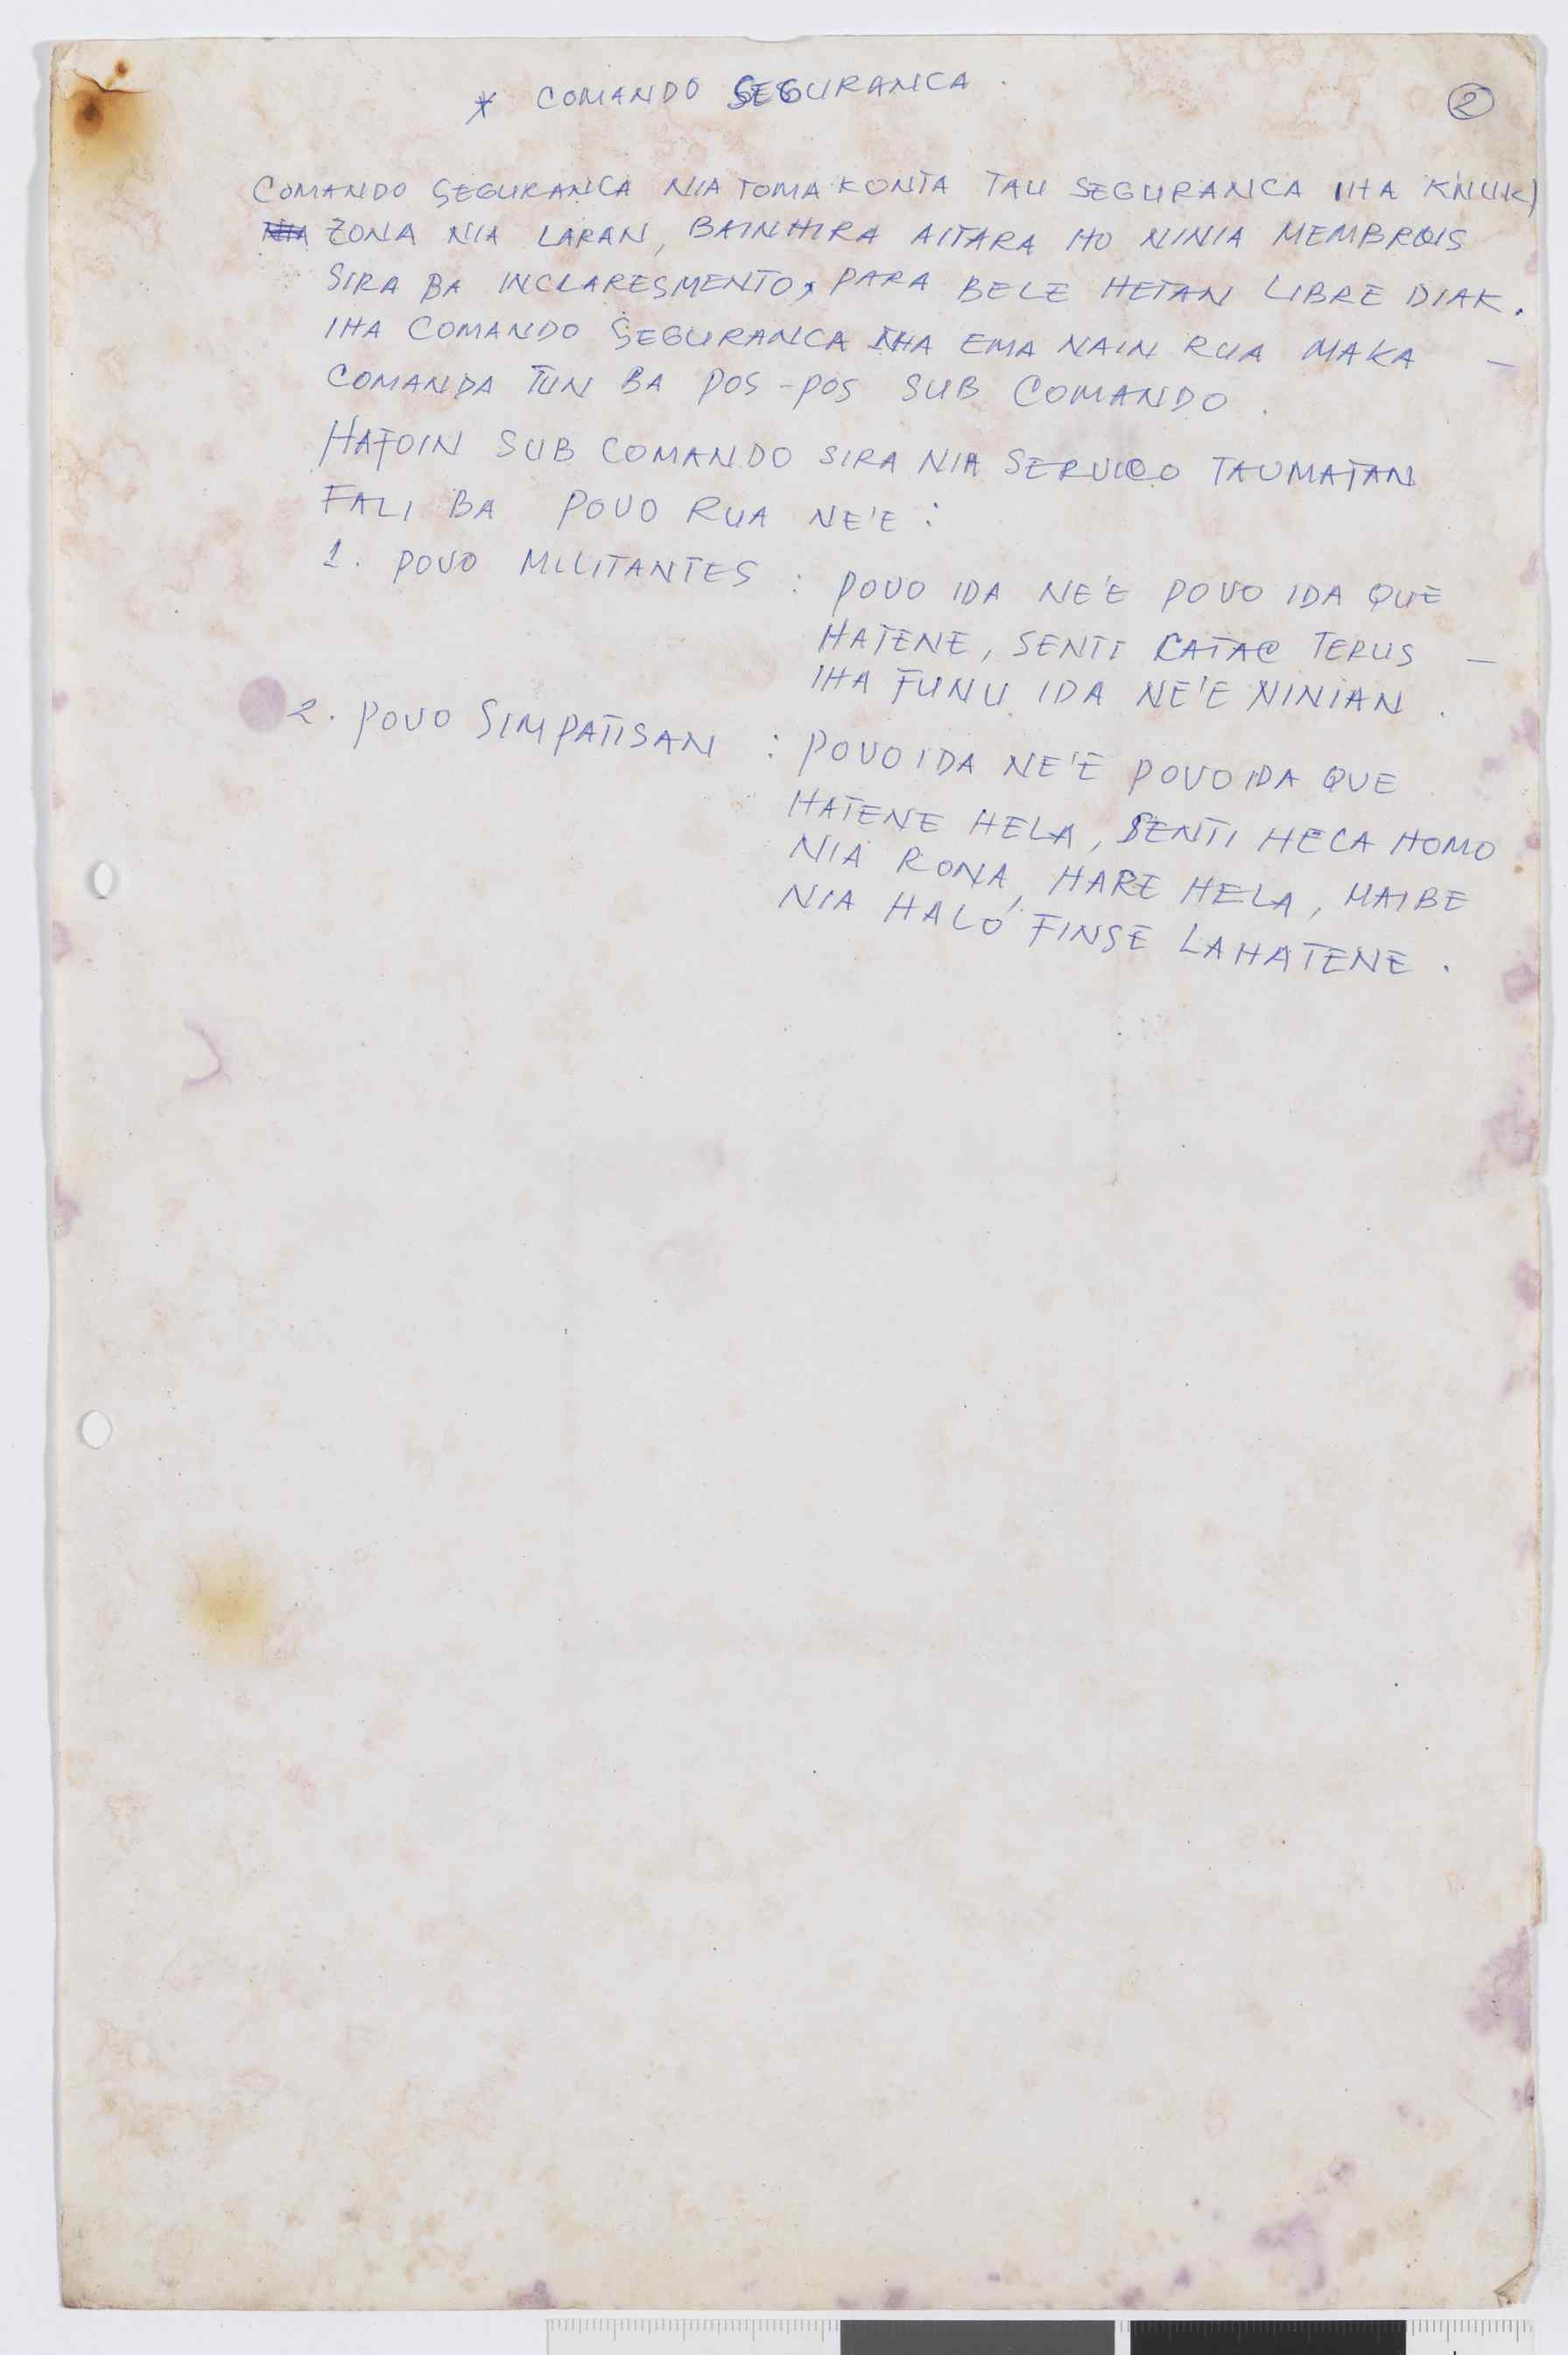 * COMANDO SEGURANCA .
2
COMANDO SEGURANCA NIA TOMA KONTA TAU SEGURANCA IHA KNUK)
ZONA NIA LARAN, BAINHIRA AITARA HO NINIA MEMBROIS
SIRA BA INCLARESMENTO, PARA BELE HETAN LIBRE DIAK.
IHA COMANDO SEGURANCA IHA EMA NAIN RUA MAKA —
COMANDA TUN BA POS-POS SUB COMANDO .
HAFOIN SUB COMANDO SIRA NIA SERVICO TAUMATAN
FALI BA POVO RUA NE'E :
1. POVO MILITANTES : POVO IDA NE'E POVO IDA QUE
HATENE, SENTI CATAC TERUS —
IHA FUNU IDA NE'E NINIAN .
2. POVO SIMPATISAN : POVO IDA NE'E POVO IDA QUE
HATENE HELA, SENTI HELA HOMO
NIA RONA, HARE HELA, MAIBE
NIA HALO FINSE LAHATENE .